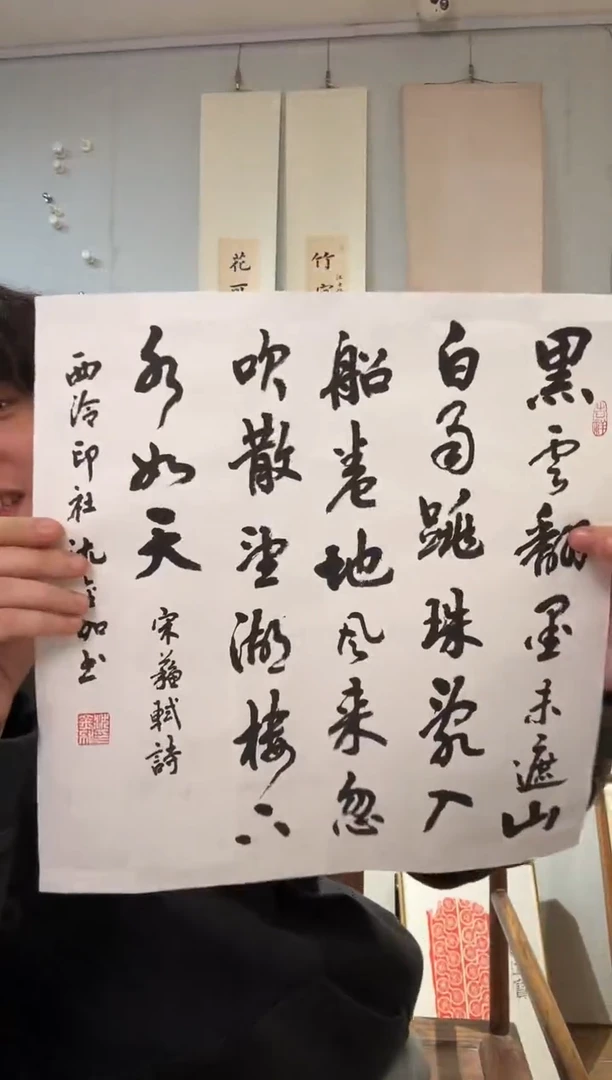 黑雲翻墨未遮山
白雨跳珠亂入
船卷地風来忽
吹散望湖樓下
水如天
宋蘇軾詩
西泠印社沈書
吉祥
竹
花